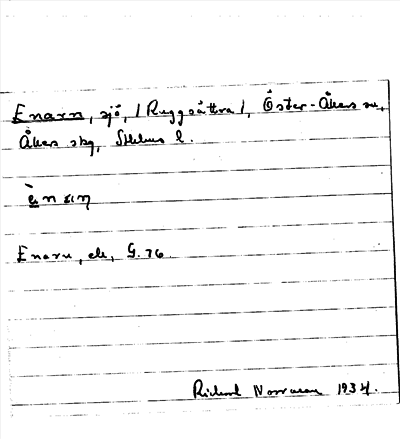 Enarn, sjö, /Ruggsättra/, Öster-Åkers sn,
Åkers skg, Sthlms l.
Enarn, ek, G. 76
Rickard Norrman 1934.